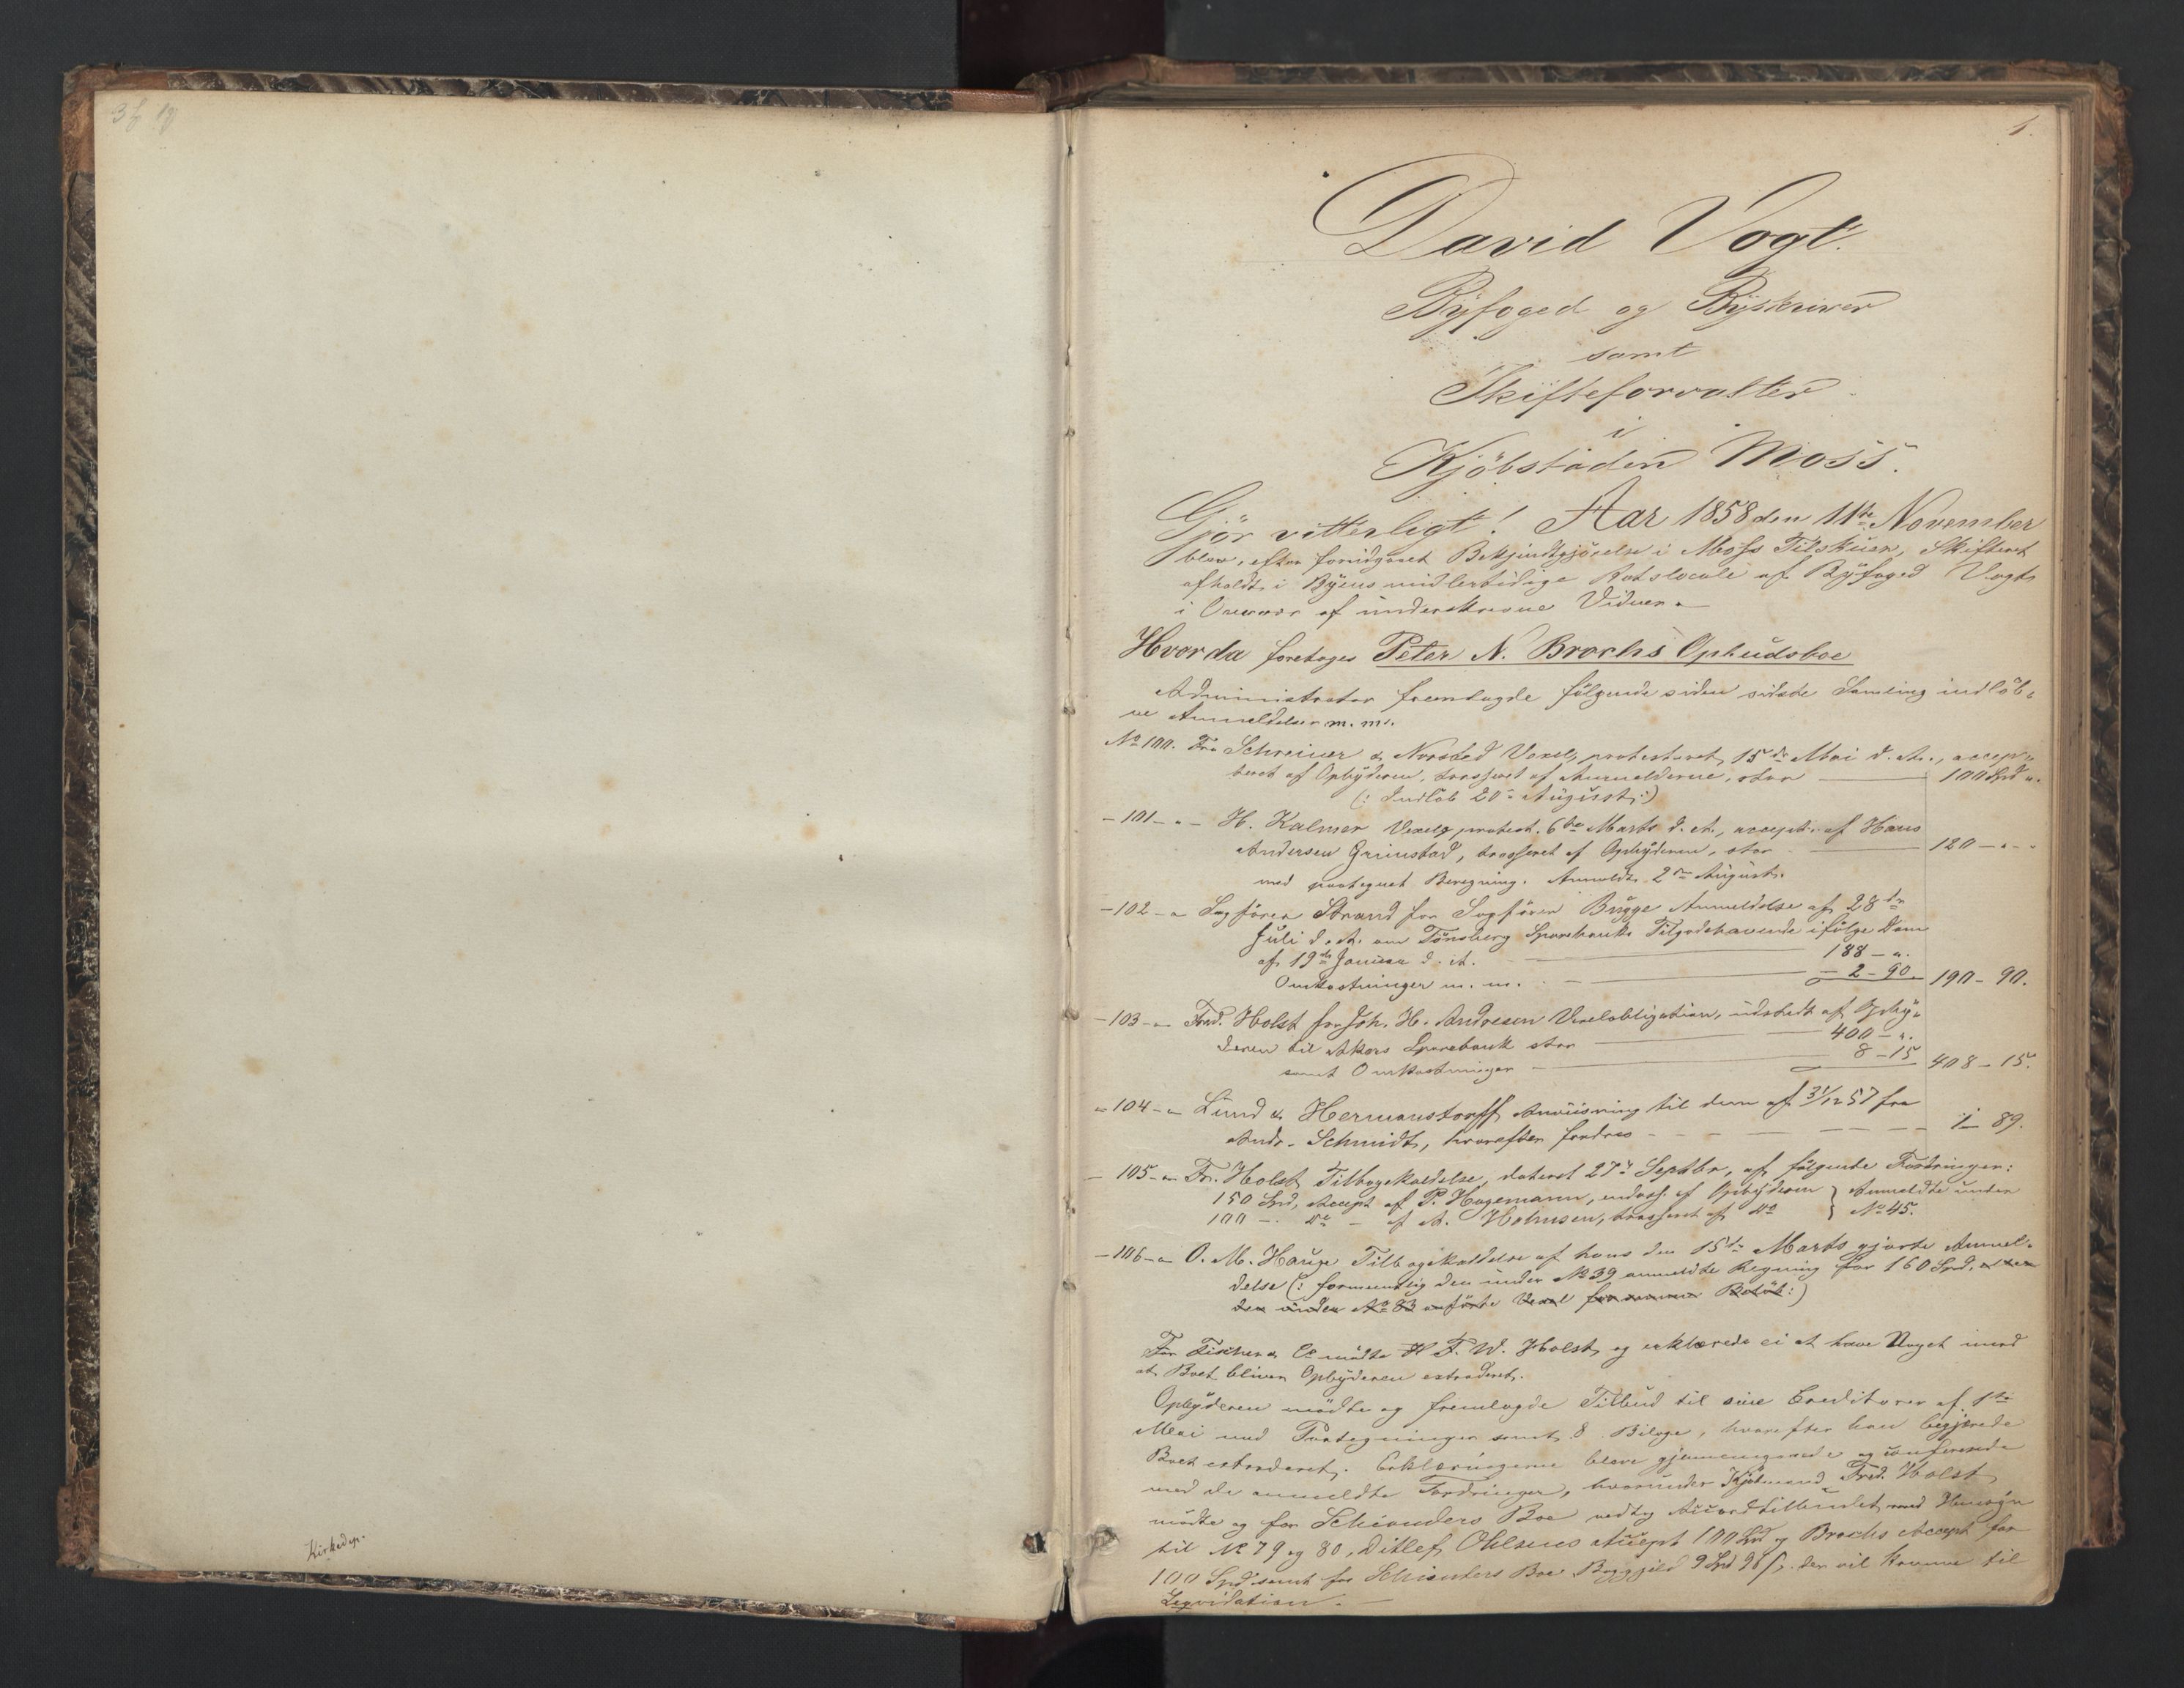 1.
David Vogt.
Byfoged og Byskriver
samt
Skifteforvalter
i
Kjöbstaden Moss.
Gjör vitterligt! Aar 1858 den 11te November
blev, efter forudgaaet Bekjendtgjörelse i Moss Tilskuer, Skifteret
afholdt i Byens midlertidige Retslocale af Byfoged Vogt
i Overvær af underskrevne Vidner.
Hvorda foretoges Peter N. Brochs Opbudsboe
Administrator fremlagde fölgende siden sidste Samling indlöb-
ne Anmeldelser m. m.
No 100. Fra Schreiner & Norsted Vexel, protesteret 15de Mai d. A., accep-
teret af Opbyderen, trasseret af Anmelderne, stor 100 Spd "
(: Indlöb 20de August :)
- 101 - " - H. Kalmer Vexel, protest. 6te Marts d. A., accept. af Hans
Andersen Grimstad, trasseret af Opbyderen, stor 120 - " -
med paategnet Beregning. Anmeldt 2den August.
- 102 - " Sagförer Strand for Sagförer Brygge Anmeldelse af 28de
Juli d. A. om Tönsberg Sparebanks Tilgodehavende ifölge Dom
af 19de Januar d. A. 188 - ".
Omkostninger m. m. - 2 - 90. 190 - 90.
- 103 - " Fred. Holst for Joh. H. Andresen Vexelobligation, udstedt af Opby-
deren til Akers Sparebank stor 400 - ".
samt Omkostninger 8 - 15 408 - 15.
- 104 - " Lund & Hermanstorff Anviisning til dem af 31/12 57 fra
Andr. Schmidt, hvorefter fordres 1 - 89.
- 105 - " Fr. Holst Tilbagekaldelse, dateret 27de Septbr, af fölgende Fordringer:
150 Spd, Accept af P. Hagemann, endoss. af Opbyderen } Anmeldte under
100 - Do - af A. Holmsen, trasseret af Do } No 45.
- 106 - " O. M. Hauge Tilbagekaldelse af hans den 15de Marts gjorte Anmel-
delse (: formentlig den under No 39 anmeldte Regning for 160 Spd. eller
den under No 83 anförte Vexel for samme Belöb :)
For Fischer & Co mödte H F. W. Holst og erklærede ei at have Noget imod
at Boet bliver Opbyderen extraderet.
Opbyderen mödte og fremlagde Tilbud til sine Creditorer af 1ste
Mai med Paategninger samt 8 Bilage, hvorefter han begjærede
Boet extraderet. Erklæringerne bleve gjennemgaaede og confererede
med de anmeldte Fordringer, hvorunder Kjöbmand Fred. Holst
mödte og for Schianders Boe vedtog Accordtilbudet med Hensyn
til No 79 og 80, Ditlef Ohlsens Accept 100 Spd og Brochs Accept for
100 Spd samt for Schianders Boe Bogjgjeld 9 Spd 98 s. der vil komme til
Liqvidation. -
Kirkedep.